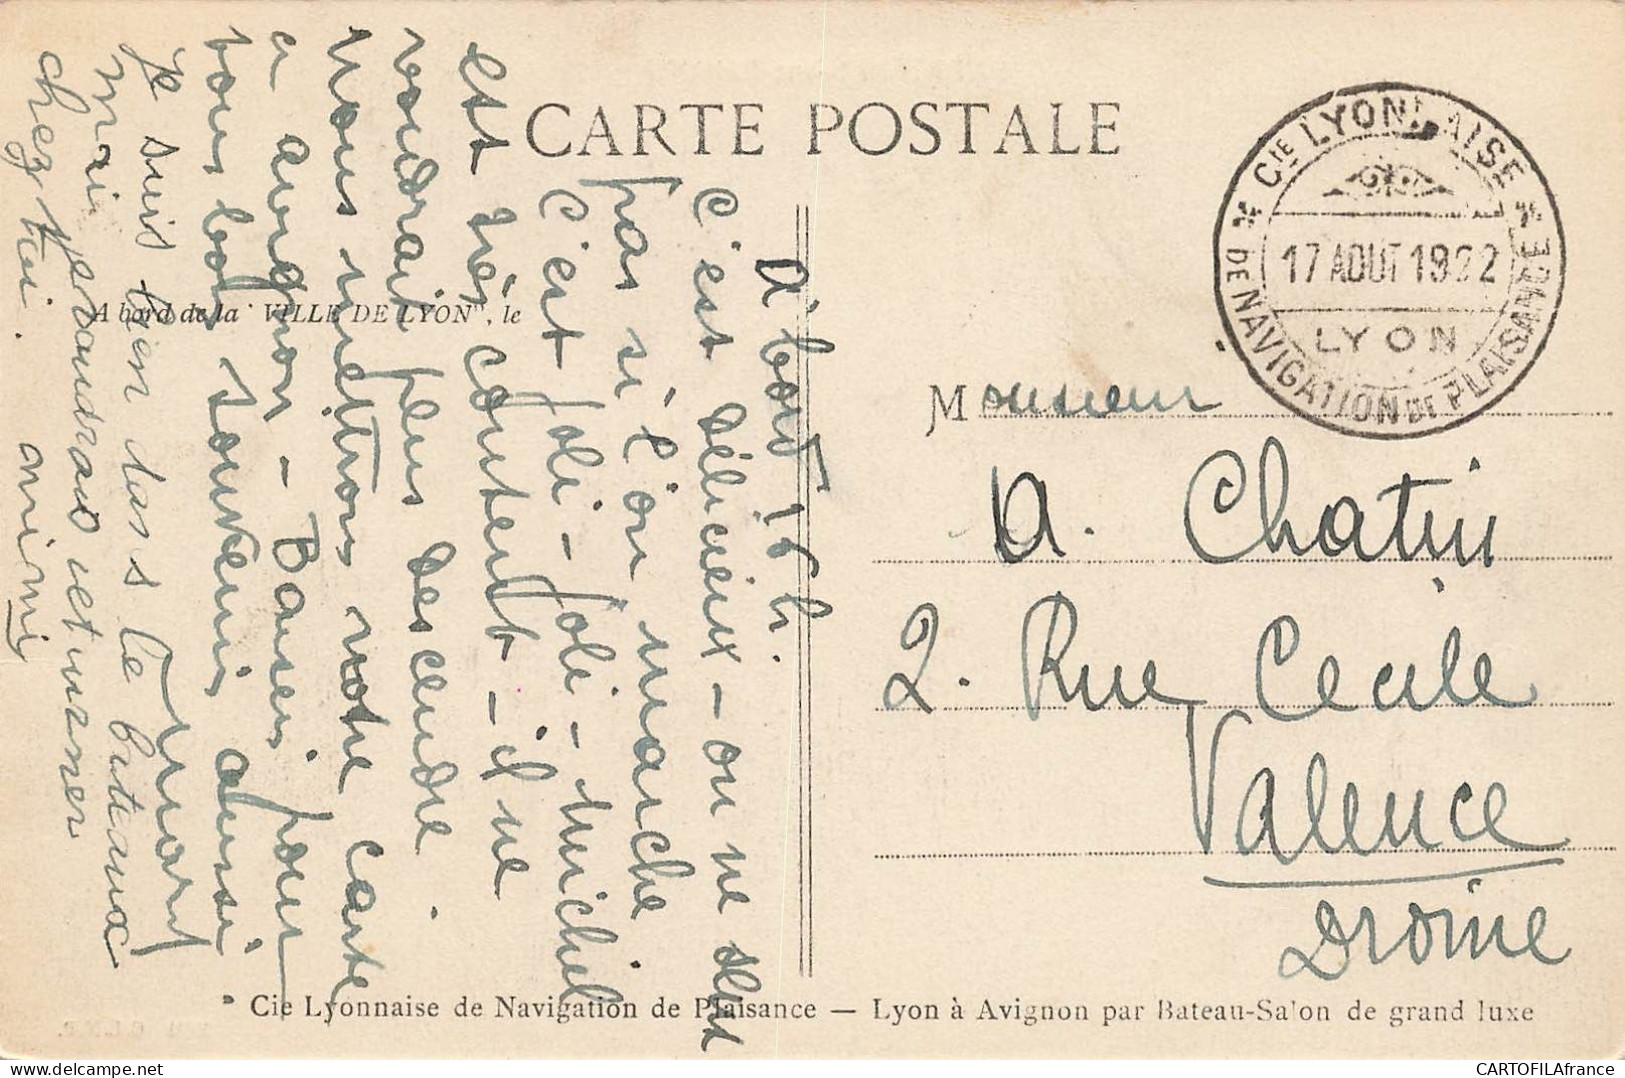 CARTE POSTALE
Cie LYONNAISE
DE NAVIGATION DE PLAISANCE
17 AOUT 1922
LYON
A bord de la "VILLE DE LYON", le
A' bord 16 h.
C'est délicieux - on ne sent
pas si l'on marche
C'est joli - joli - Michel
est très content - il ne
voudrait plus descendre.
Nous mettrons votre carte
a avignon - Baisers pour
tous bons souvenirs aussi
Mart
je suis bien dans le bateaux
mai je voudrais returner
chez tui. mimi
Monsieur
A. Chatin
2. Rue Cecile
Valence
Drome
Cie Lyonnaise de Navigation de Plaisance — Lyon à Avignon par Bateau-Salon de grand luxe
CARTOFILAfrance